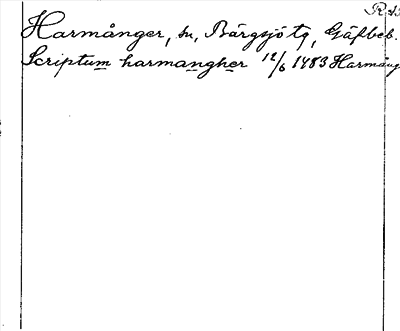 Harmånger, sn, Bärgsjö tg, Gäfleb.
Scriptum harmangher 12/6 1483 Harmång